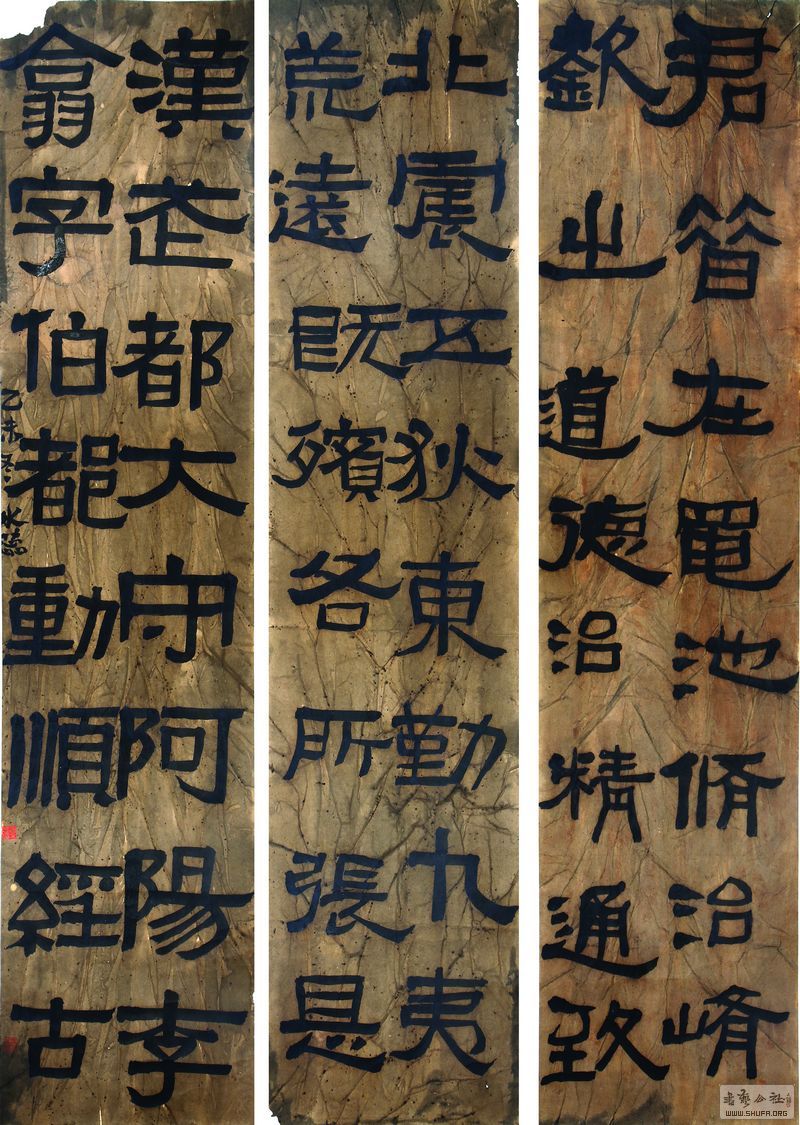 君昔在黽池脩治崤
嶔之道德治精通致
北震五狄東勤九夷
荒遠既殯各所張是
漢武都大守阿陽李
翕字伯都動順經古
乙未冬
书藝公社
WWW.SHUFA.ORG